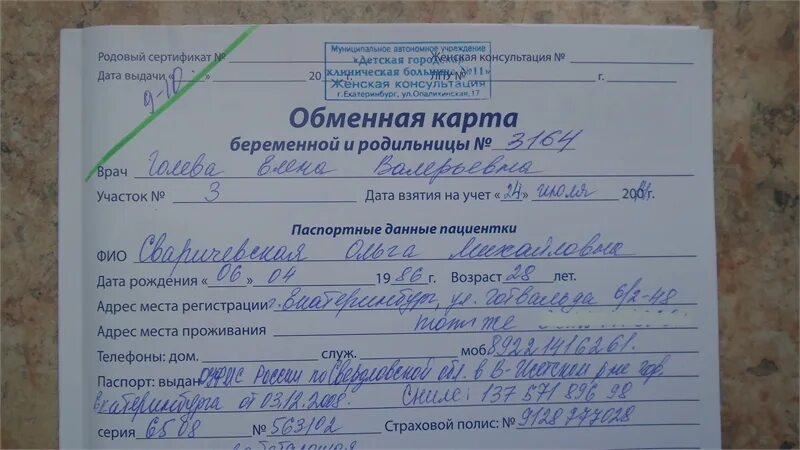 Муниципальное автономное учреждение
«Детская городская
клиническая больница №11»
Женская консультация
г.Екатеринбург, ул.Опалихинская, 17
Родовый сертификат № Женская консультация №
Дата выдачи « » 20 г. ЛПУ № г.
9-10
Обменная карта
беременной и родильницы № 3164
Врач Голева Елена Валерьевна
Участок № 3 Дата взятия на учет «24» июля 200 г.
Паспортные данные пациентки
ФИО Сваричевская Ольга Михайловна
Дата рождения «06» 04 1986 г. Возраст 28 лет.
Адрес места регистрации г. Екатеринбург, ул. Готвальда 6/2-48
Адрес места проживания то же
Телефоны: дом. служ. моб 89221416261.
Паспорт: выдан ОУФМС России по Свердловской обл. в В-Исетском р-не гор.
Екатеринбурга от 03.12.2008. Снилс: 137 571 896 98
серия 6508 № 563102 Страховой полис: № 9128777028